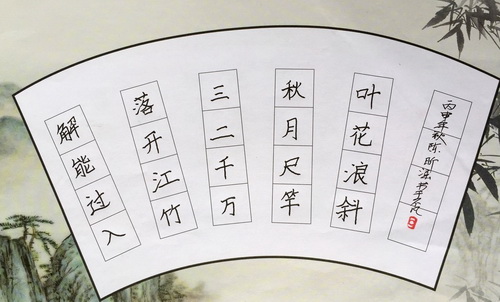 解落三秋叶
能开二月花
过江千尺浪
入竹万竿斜
丙申年秋陈昕